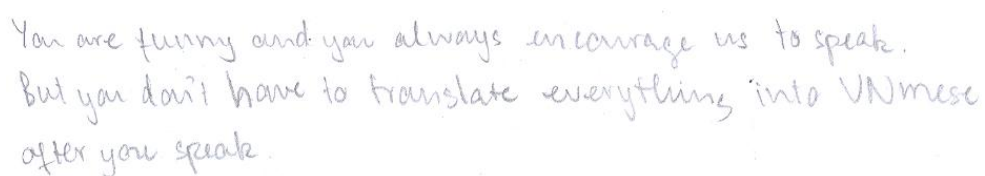 You are funny and you always encourage us to speak.
But you don't have to translate everything into VNmese
after you speak.